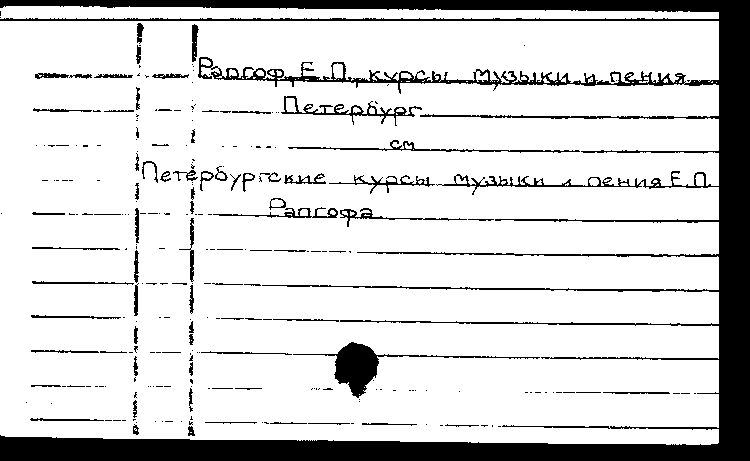 Рапгоф, Е.П., курсы музыки и пения
Петербург
см
Петербургские курсы музыки и пения Е.П.
Рапгофа